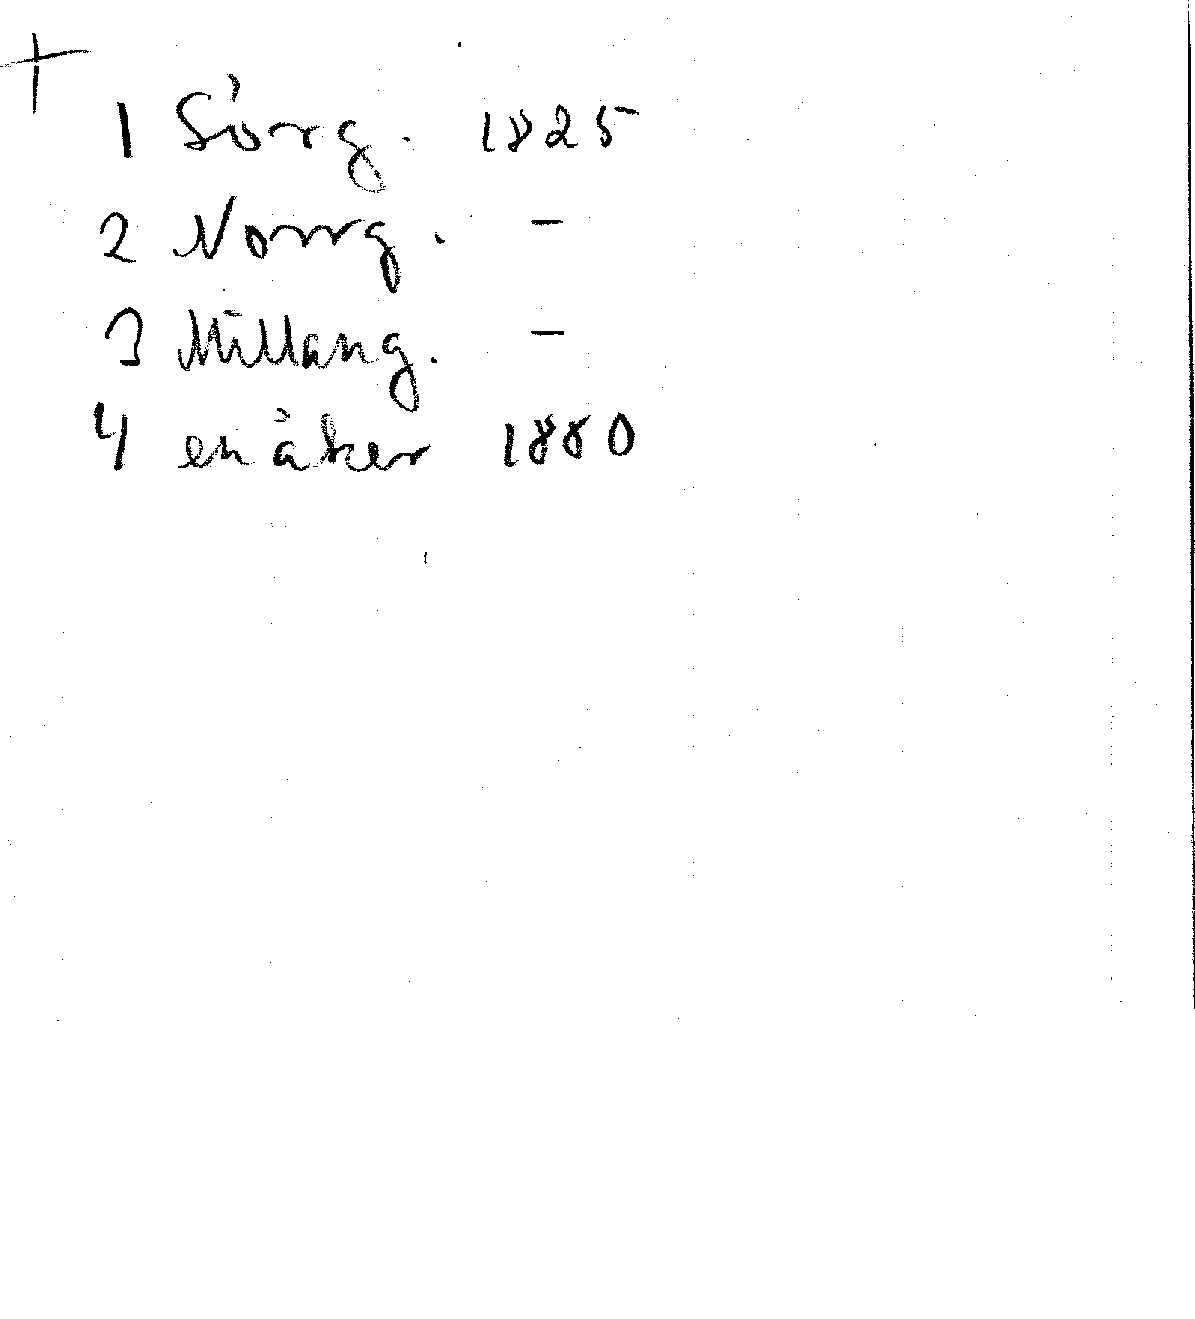 +
1 Sörg. 1825
2 Norrg. -
3 Mellang. -
4 en åker 1880